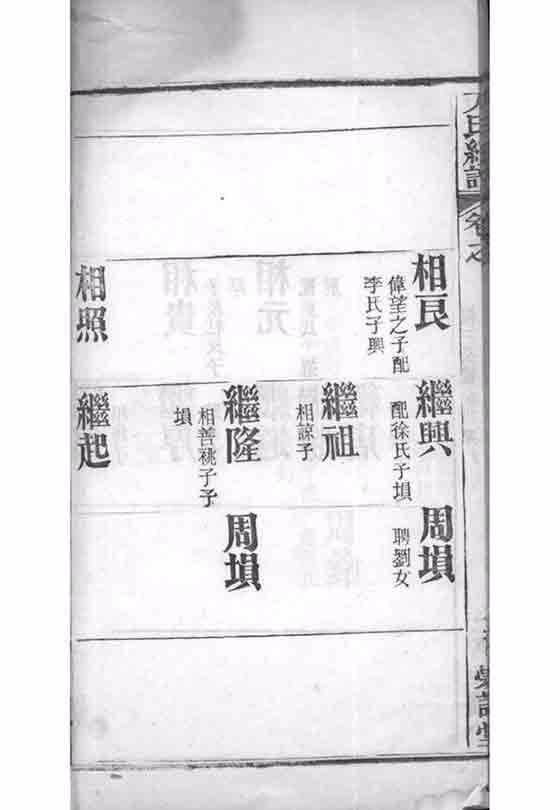 氏給譜
卷之
相艮
偉望之子配
李氏子興
繼興
配徐氏子塤
周塤
聘劉女
繼祖
相諒子
繼隆
相善祧子子
塤
周塤
相照
繼起